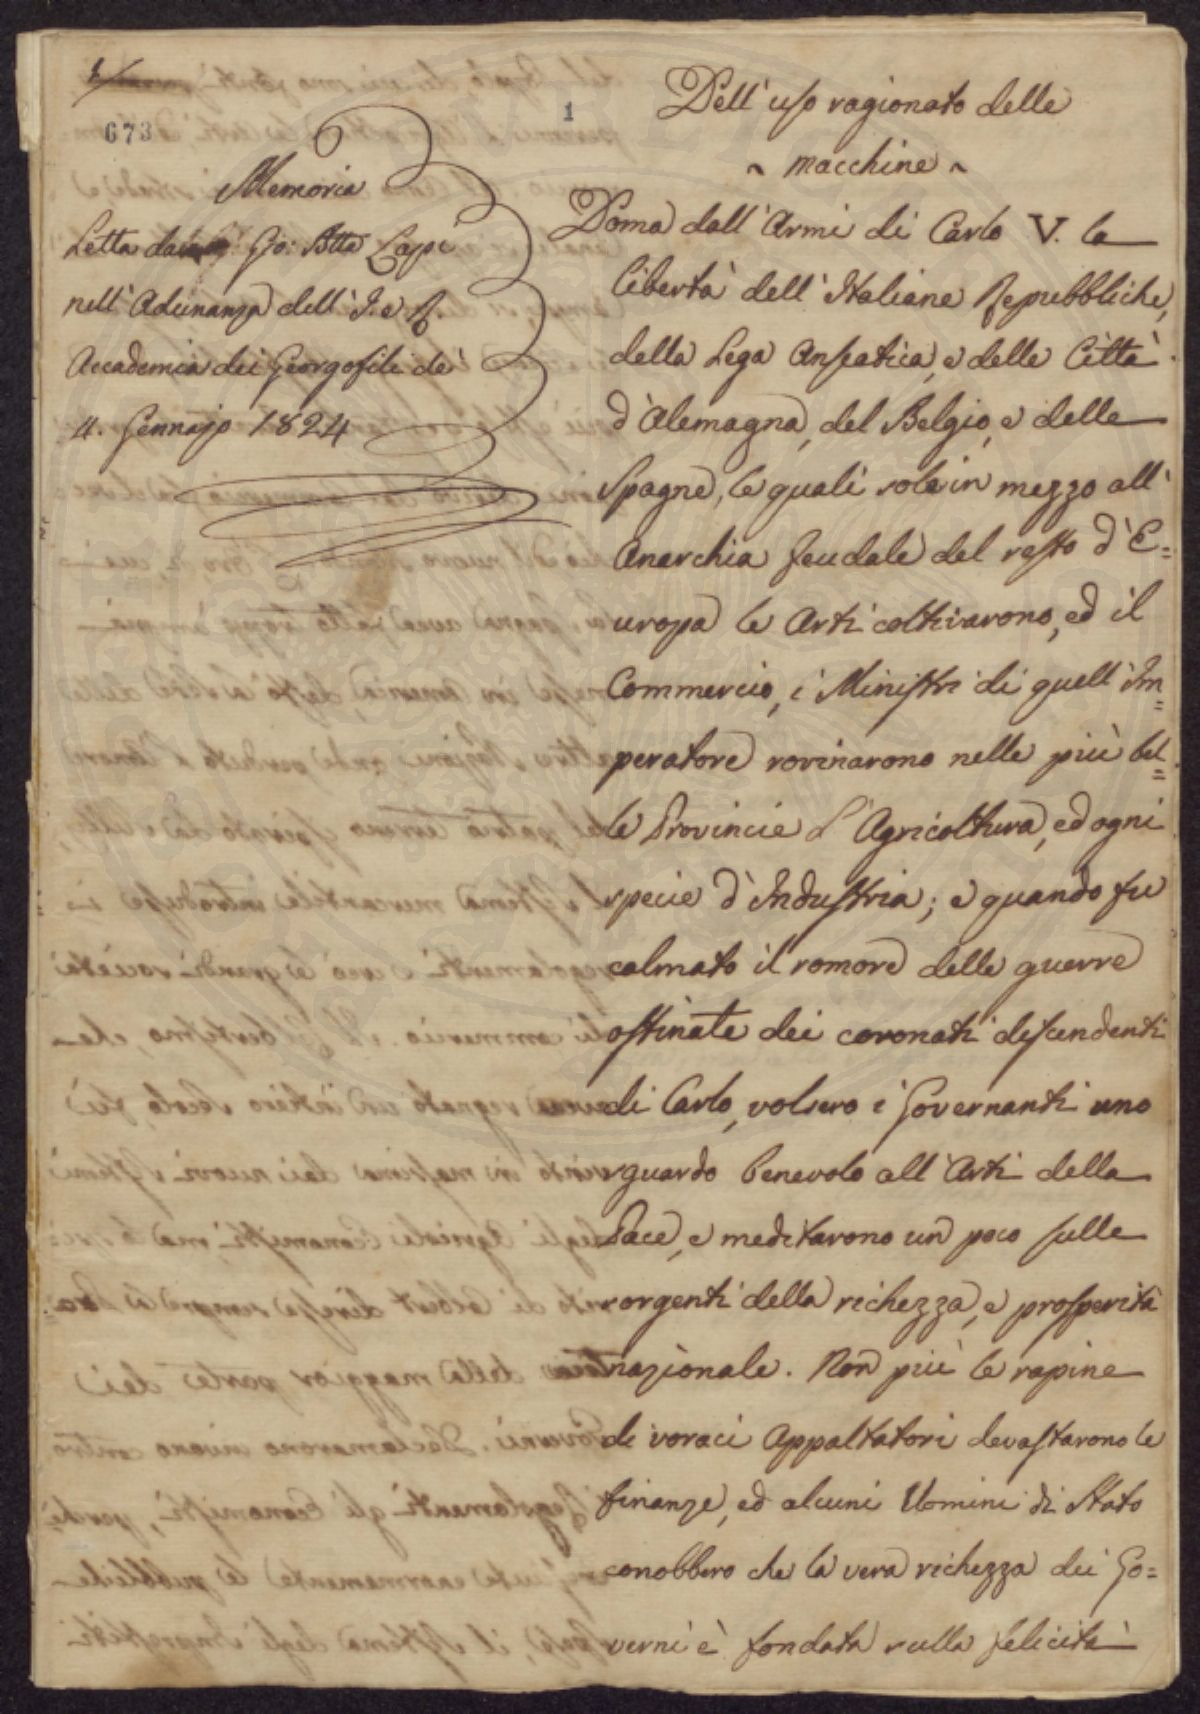 1
673
1
Memoria
Letta da Gio: Batta Lapi
nell' Adunanza dell' I. e R.
Accademia dei Georgofili de'
4. Gennajo 1824
Dell' uso ragionato delle
~ macchine ~
Doma dall' Armi di Carlo V. la
libertà dell' Italiane Repubbliche,
della Lega Anseatica, e delle Città
d'Alemagna, del Belgio, e delle
Spagne, le quali sole in mezzo all'
Anarchia feudale del resto d'E=
uropa le Arti coltivarono, ed il
Commercio, i Ministri di quell' Im=
peratore rovinarono nelle più bel=
le Provincie l'Agricoltura, ed ogni
specie d'Industria; e quando fu
calmato il romore delle guerre
ostinate dei coronati descendenti
di Carlo, volsero i Governanti uno
sguardo benevolo all' Arti della
Pace, e meditarono un poco sulle
sorgenti della richezza, e prosperità
nazionale. Non più le rapine
di voraci Appaltatori devastarono le
finanze, ed alcuni Uomini di Stato
conobbero che la vera richezza dei Go=
verni è fondata sulla felicità